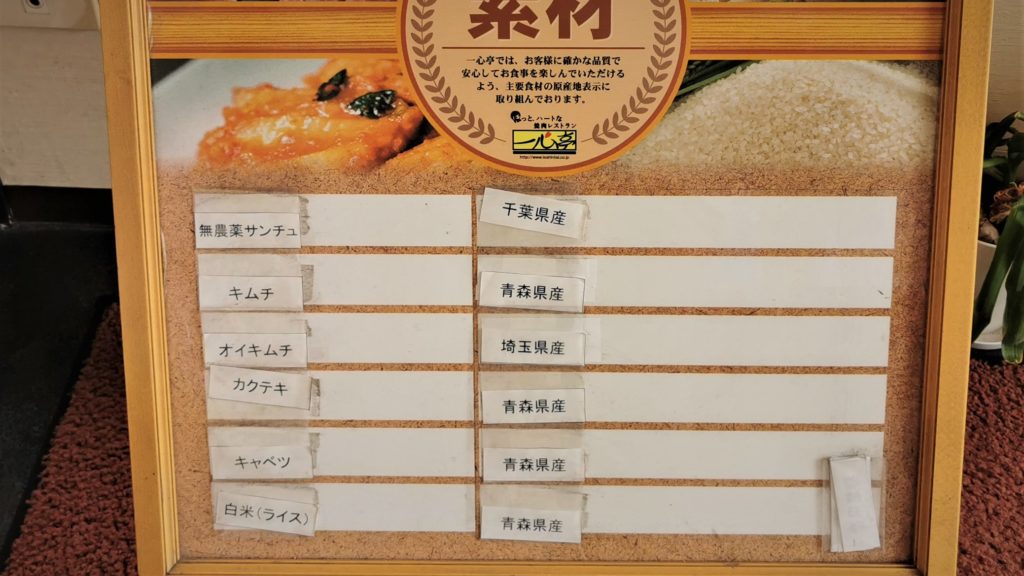 素材
一心亭では、お客様に確かな品質で
安心してお食事を楽しんでいただける
よう、主要食材の原産地表示に
取り組んでおります。
ほっと、ハートな
焼肉レストラン
一心亭
無農薬サンチュ 千葉県産
キムチ 青森県産
オイキムチ 埼玉県産
カクテキ 青森県産
キャベツ 青森県産
白米(ライス) 青森県産